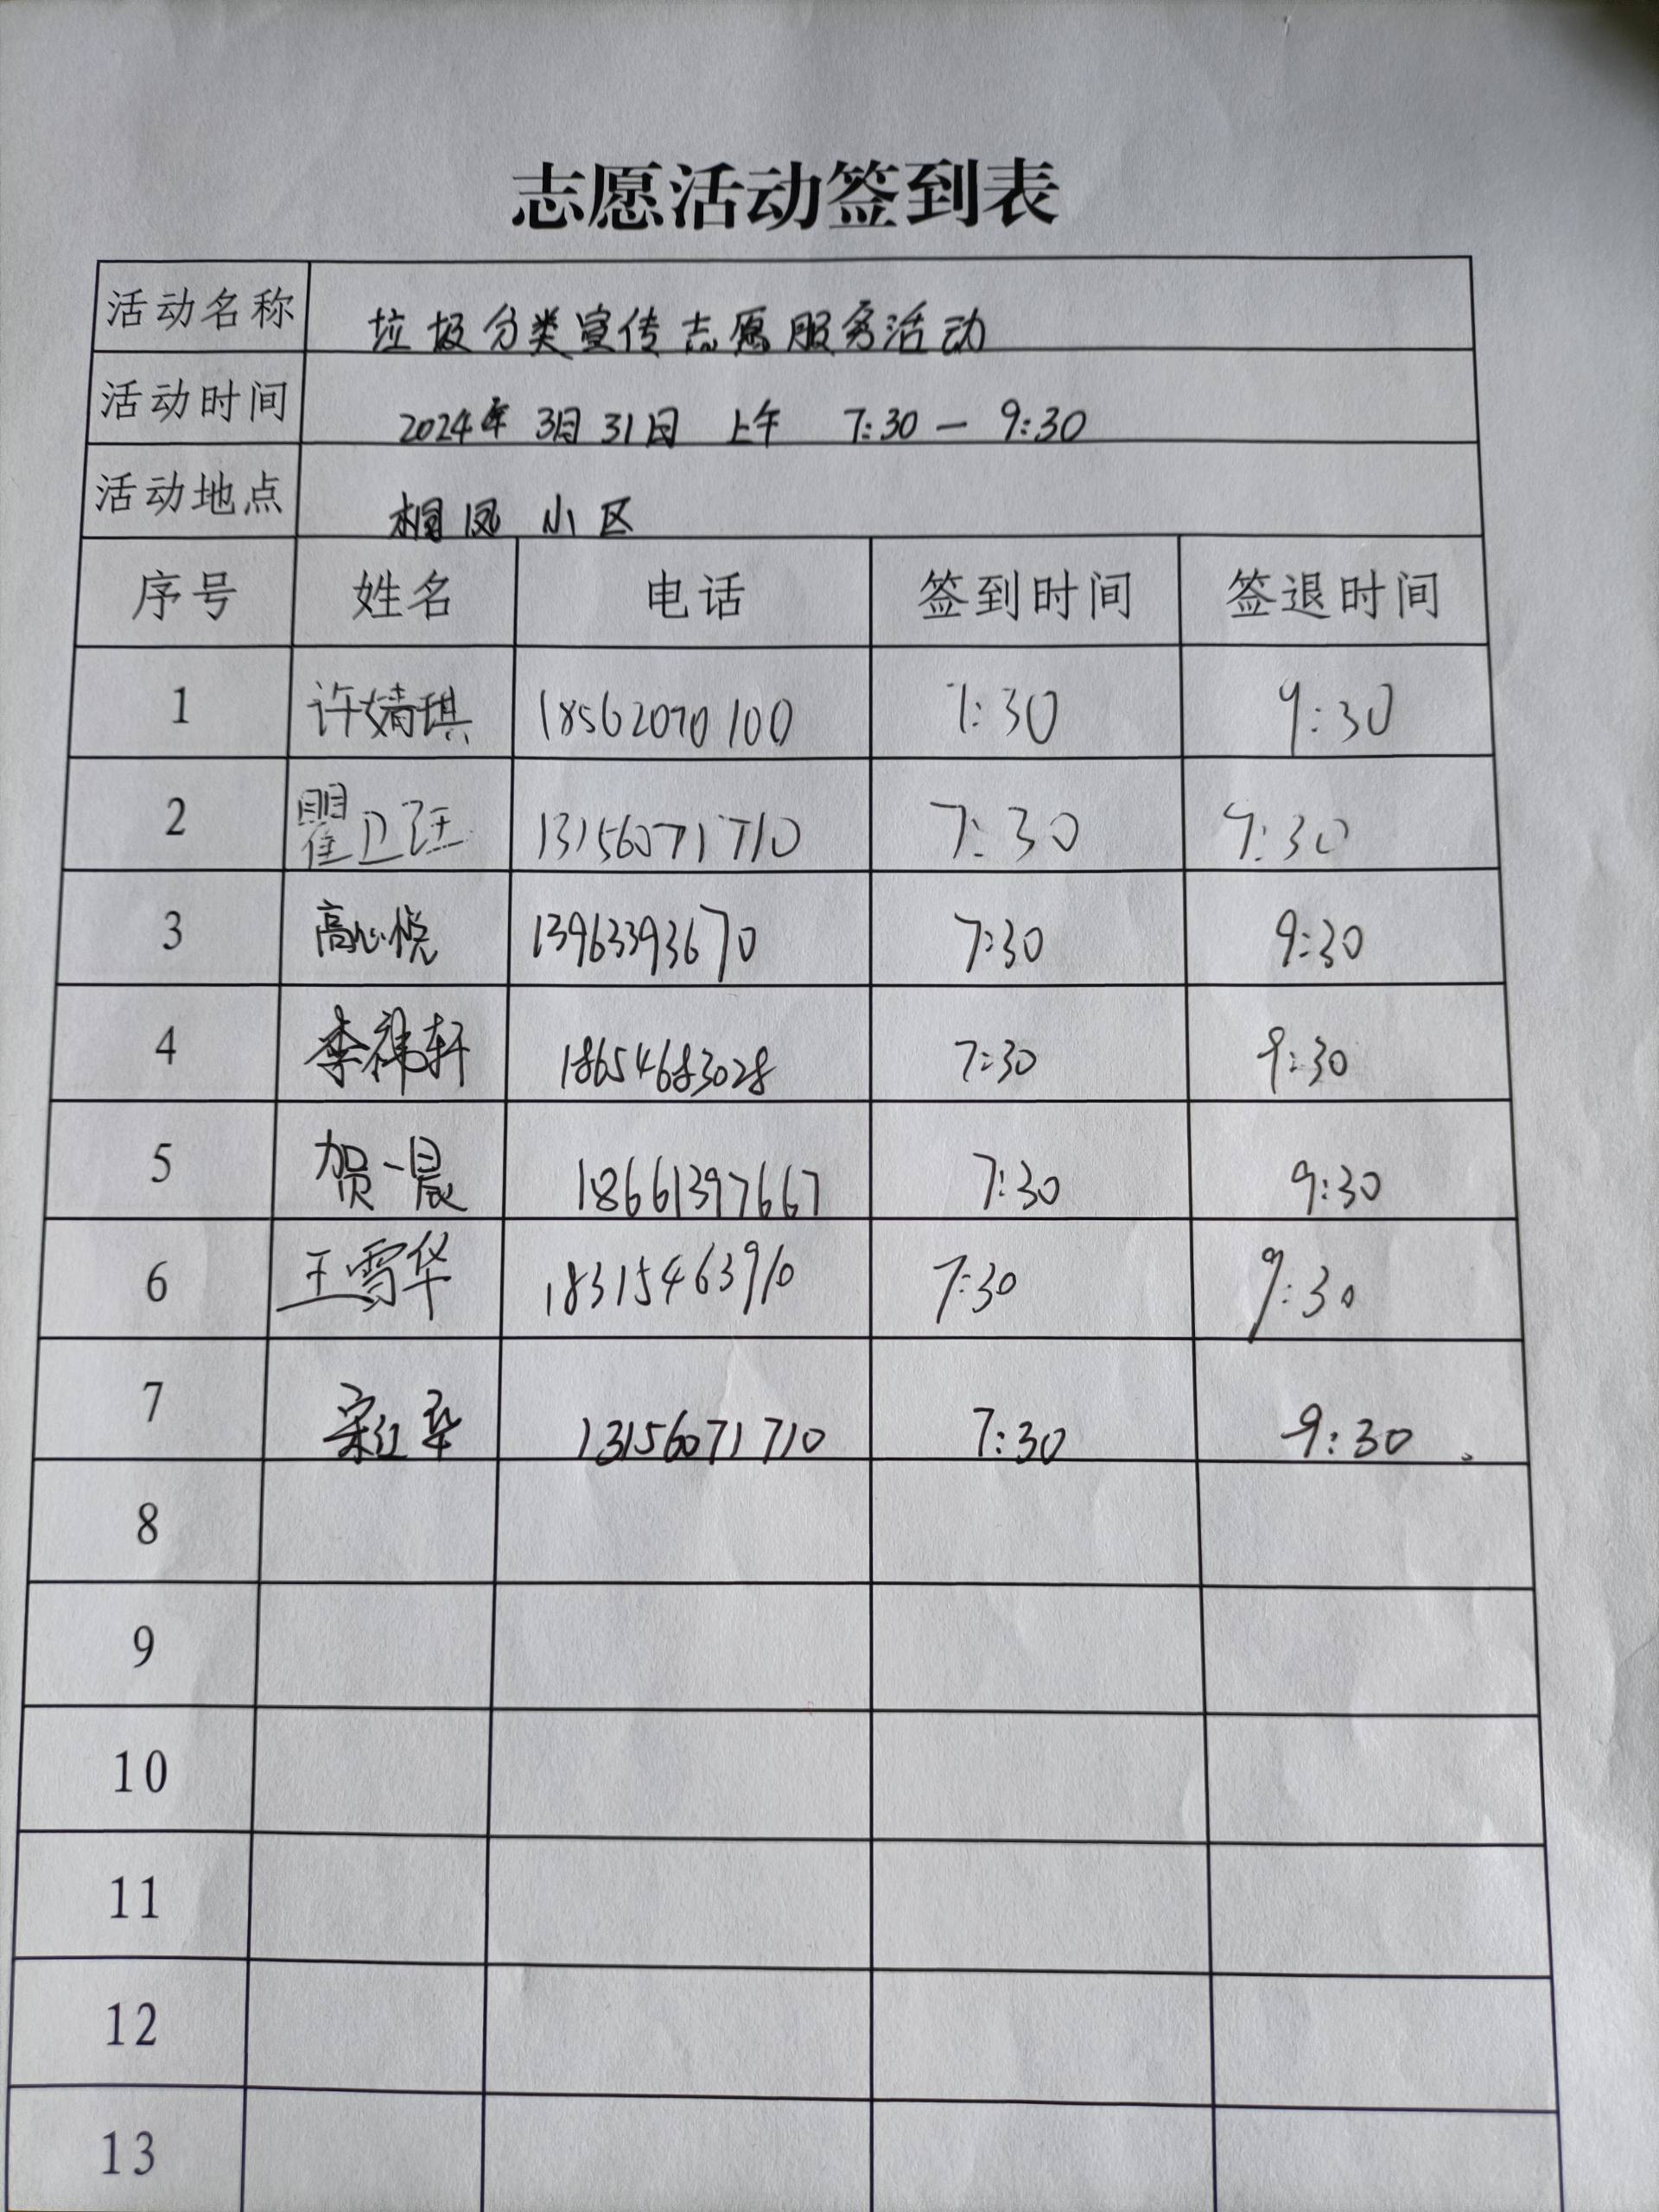 志愿活动签到表
活动名称 垃圾分类宣传志愿服务活动
活动时间 2024年 3月 31日 上午 7:30 — 9:30
活动地点 小区
序号 姓名 电话 签到时间 签退时间
1 许婧琪 18562070100 7:30 9:30
2 瞿卫 13156071710 7:30 9:30
3 高心悦 13963393670 7:30 9:30
4 李祎轩 18654683028 7:30 9:30
5 贺一晨 18661397667 7:30 9:30
6 王雪华 18315463910 7:30 9:30
7 宋红华 13156071710 7:30 9:30
8
9
10
11
12
13